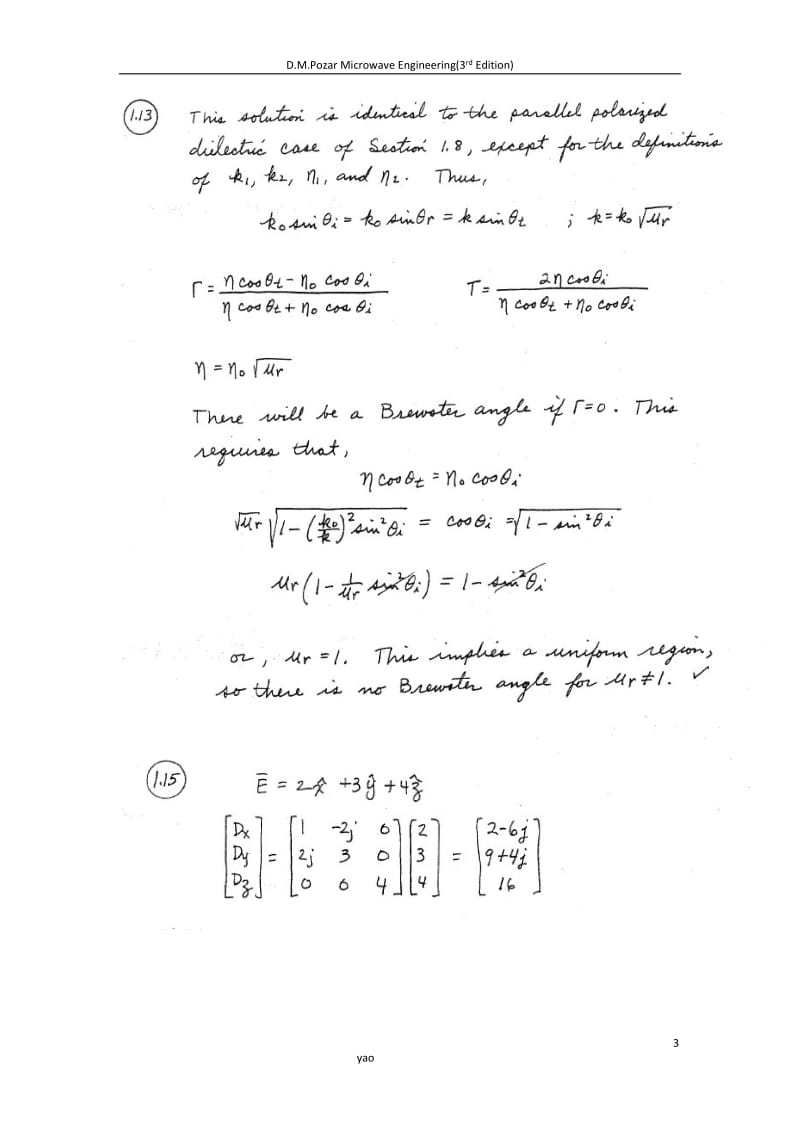 D.M.Pozar Microwave Engineering(3rd Edition)
1.13 This solution is identical to the parallel polarized
dielectric case of Section 1.8, except for the definitions
of k₁, k₂, η₁, and η₂. Thus,
k₀ sin θi = k₀ sin θr = k sin θt ; k = k₀ √μr
Γ = (η cos θt - η₀ cos θi) / (η cos θt + η₀ cos θi) T = 2η cos θi / (η cos θt + η₀ cos θi)
η = η₀ √μr
There will be a Brewster angle if Γ=0. This
requires that,
η cos θt = η₀ cos θi
√μr √(1 - (k₀/k)² sin² θi) = cos θi = √(1 - sin² θi)
μr (1 - 1/μr sin² θi) = 1 - sin² θi
or, μr = 1. This implies a uniform region,
so there is no Brewster angle for μr ≠ 1. ✓
1.15 Ē = 2x̂ + 3ŷ + 4ẑ
[Dx] [1 -2j 0] [2] [2-6j]
[Dy] = [2j 3 0] [3] = [9+4j]
[Dz] [0 0 4] [4] [16]
3
yao